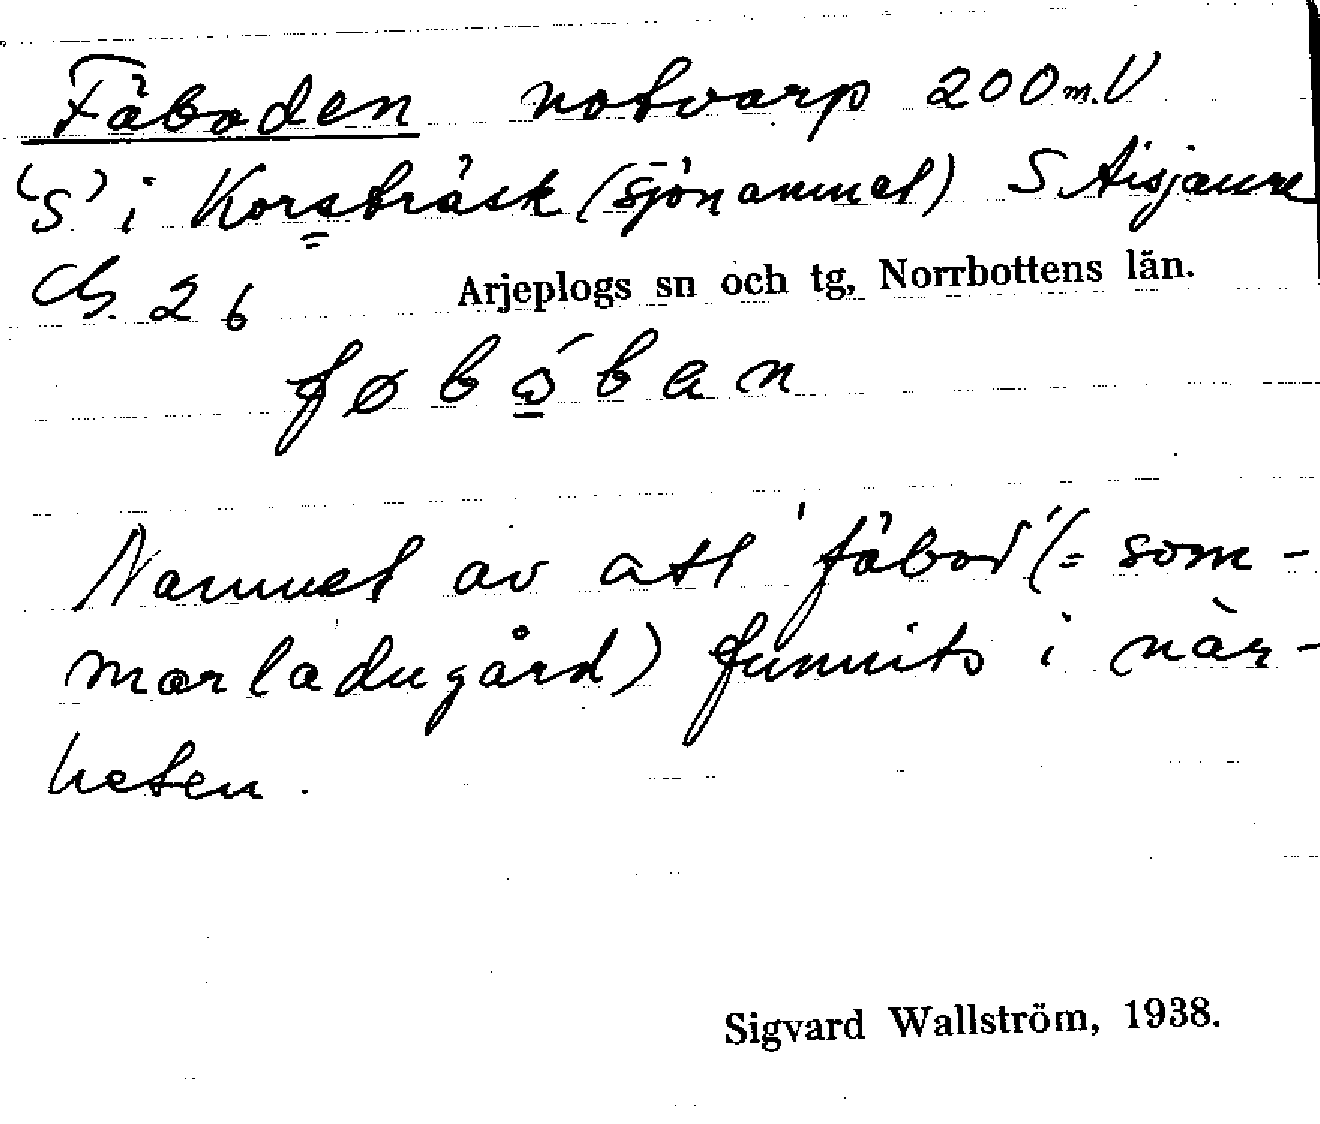 Fäboden notvarp 200 m. V
'S' i Korsträsk (sjönamnet) S Aisjaure
26
Arjeplogs sn och tg, Norrbottens län.
føbɷ́ban
Namnet av att 'fäbod' (= som-
marladugård) funnits i när-
heten.
Sigvard Wallström, 1938.